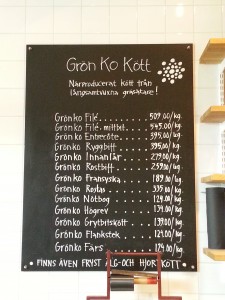 Grön Ko Kött
Närproducerat kött från
långsamtvuxna gräsätare!
Grönko Filé..........509.00/kg.
Grönko Filé, mittbit...545.00/kg.
Grönko Entrecôte......395.00/kg.
Grönko Ryggbiff.......395.00/kg.
Grönko Innanlår.......279.00/kg.
Grönko Rostbiff.......259.00/kg.
Grönko Fransyska.....189.00/kg.
Grönko Rostas........335.00/kg.
Grönko Nötbog........129.00/kg.
Grönko Högrev........139.00/kg.
Grönko Grytbitskött...139.00/kg.
Grönko Flankstek.....129.00/kg.
Grönko Färs..........124.00/kg.
• FINNS ÄVEN FRYST ÄLG-OCH HJORTKÖTT